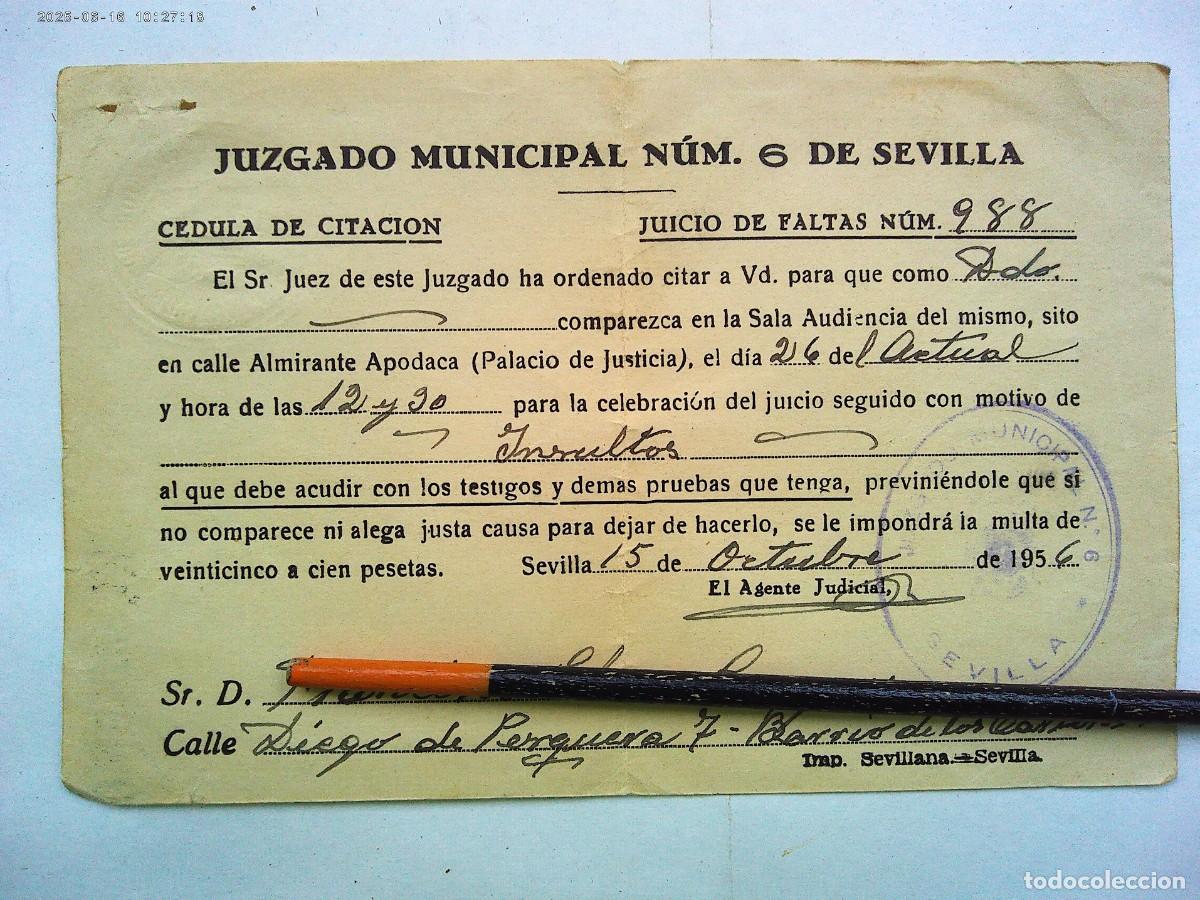 2025-08-16 10:27:18
JUZGADO MUNICIPAL NÚM. 6 DE SEVILLA
CEDULA DE CITACION
JUICIO DE FALTAS NÚM. 988
El Sr. Juez de este Juzgado ha ordenado citar a Vd. para que como Ddo.
comparezca en la Sala Audiencia del mismo, sito
en calle Almirante Apodaca (Palacio de Justicia), el día 26 del Actual
y hora de las 12 y 30 para la celebración del juicio seguido con motivo de
Insultos
al que debe acudir con los testigos y demas pruebas que tenga, previniéndole que si
no comparece ni alega justa causa para dejar de hacerlo, se le impondrá la multa de
veinticinco a cien pesetas. Sevilla 15 de Octubre de 1956
El Agente Judicial,
JUZGADO MUNICIPAL N.º 6
SEVILLA
Sr. D.
Calle Diego de Perguera 7 - Barrio de los
Imp. Sevillana.-Sevilla.
todocoleccion